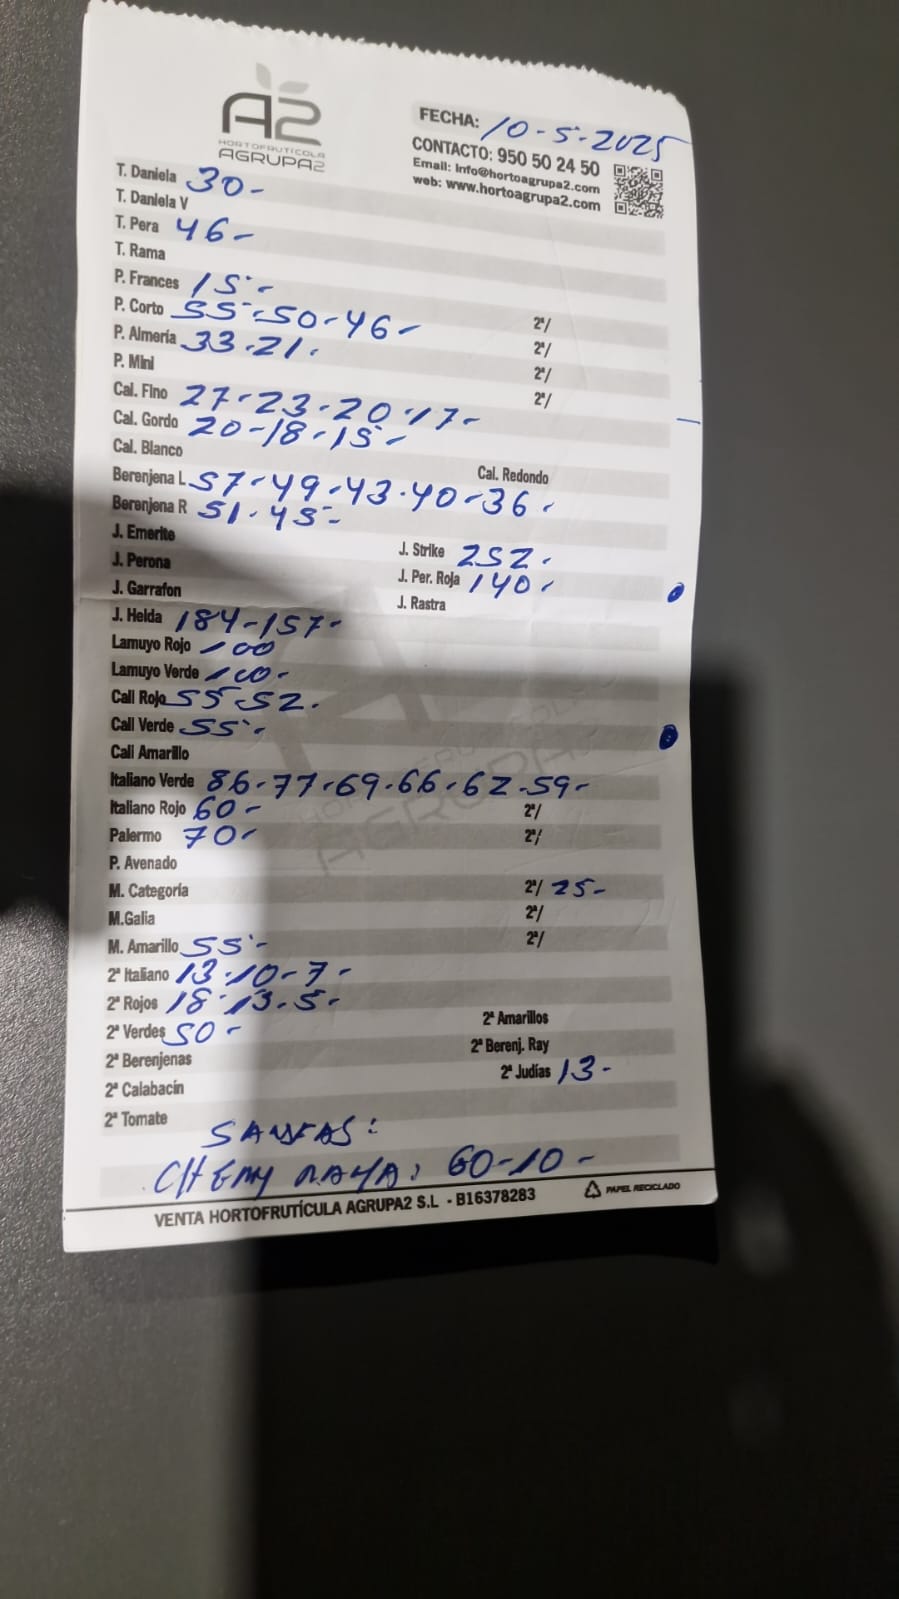 A2
HORTOFRUTÍCOLA
AGRUPA2
FECHA: 10-5-2025
CONTACTO: 950 50 24 50
Email: info@hortoagrupa2.com
web: www.hortoagrupa2.com
T. Daniela 30-
T. Daniela V
T. Pera 46-
T. Rama
P. Frances 15-
P. Corto 55-50-46- 2ª/
P. Almería 33-21. 2ª/
P. Mini 2ª/
Cal. Fino 27-23-20-17- 2ª/
Cal. Gordo 20-18-15-
Cal. Blanco Cal. Redondo
Berenjena L 57-49-43-40-36-
Berenjena R 51-45-
J. Emerite J. Strike 252-
J. Perona J. Per. Roja 140-
J. Garrafon J. Rastra
J. Helda 184-157-
Lamuyo Rojo 100
Lamuyo Verde 100-
Cali Rojo 55-52.
Cali Verde 55-
Cali Amarillo
Italiano Verde 86-77-69-66-62-59-
Italiano Rojo 60- 2ª/
Palermo 70- 2ª/
P. Avenado
M. Categoría 2ª/ 25-
M.Galia 2ª/
M. Amarillo 55- 2ª/
2ª Italiano 13-10-7-
2ª Rojos 18-13-5-
2ª Verdes 50- 2ª Amarillos
2ª Berenjenas 2ª Berenj. Ray
2ª Calabacín 2ª Judías 13-
2ª Tomate
60-10-
VENTA HORTOFRUTÍCULA AGRUPA2 S.L - B16378283 PAPEL RECICLADO